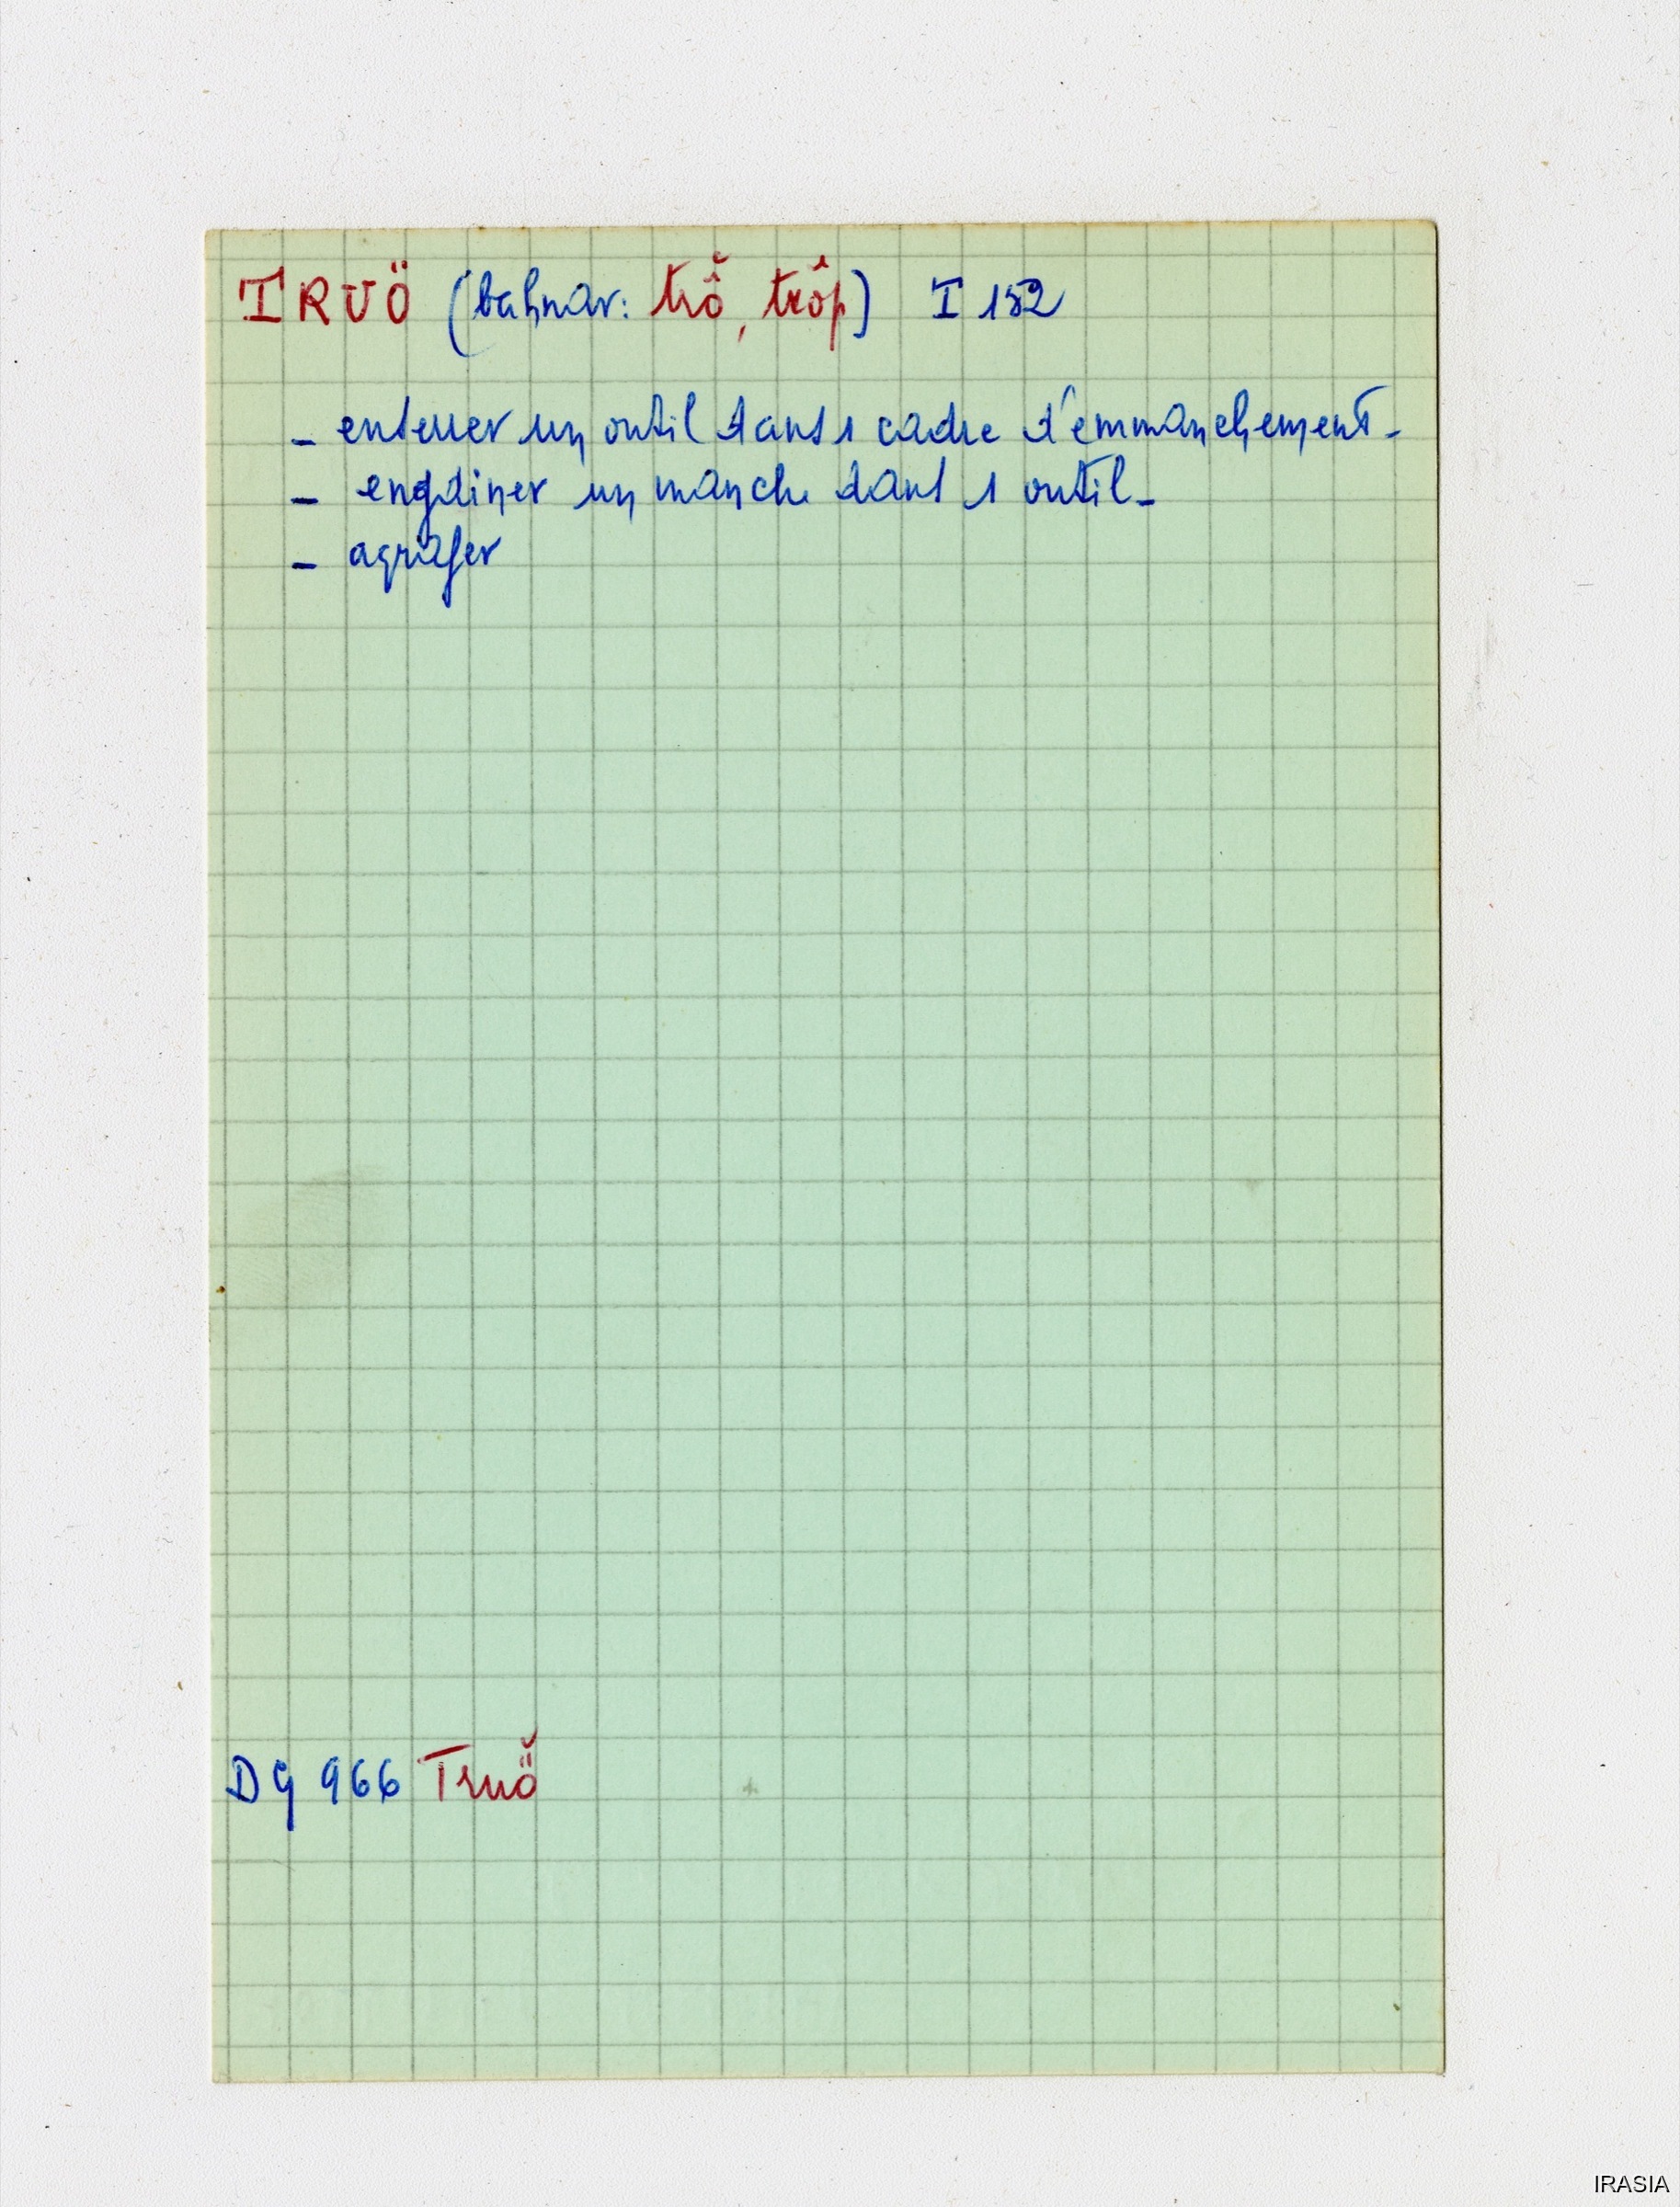 TRUÖ (bahnar: trô̆, trôp) I 152
- enterrer un outil dans 1 cadre d'emmanchement -
- engainer un manche dans 1 outil -
- agrafer
DG 966 Truö̆
IRASIA